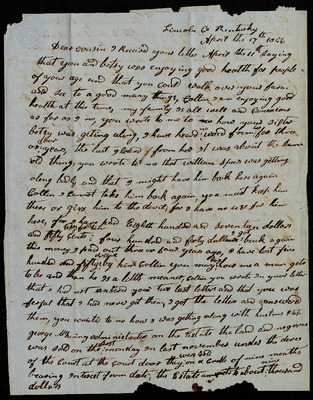 Lincoln Co Kentucky
April the 17th 1866
Dear cousin I Received you letter April the 11th saying
that you and betsy was enjoying good health for people
of your age and that you could walk over your farm
and see to a good many things, Collin I am enjoying good
health at this time, my family is all well and Connections
as far as I no, you wrote to me to no how your sister
betsy was getting along, I have heard no word from her for three
or four years, the last I heard from her it was about the same
old thing you wrote to me that william spurs was getting
along badly and that I might have him back here again
Collin I cannot take him back again, you must keep him
there or give him to the devil, for I have no use for him
here, for I have paid Eighth hundred and seventy six dollars
and fifty cents: four hundred and forty dollars I got back again
this money I paid out three or four years ago, I have lost four
hundred and fifty by him Collin you now how mean a man gets
to be and then he is a little meaner when you wrote in your letter
that I had not answerd your two last letter and that you was
fearful that I had never got them, I got the letters and answered
them, you wanted to no how I was getting along with
george Whining administrator on the Estate the land and negroes
was sold on the monday in last november under the decree
of the Court at the court door they were sold on a Credit of nine months
bearing interest from date, the Estate amounts to about nine thousand
dollars